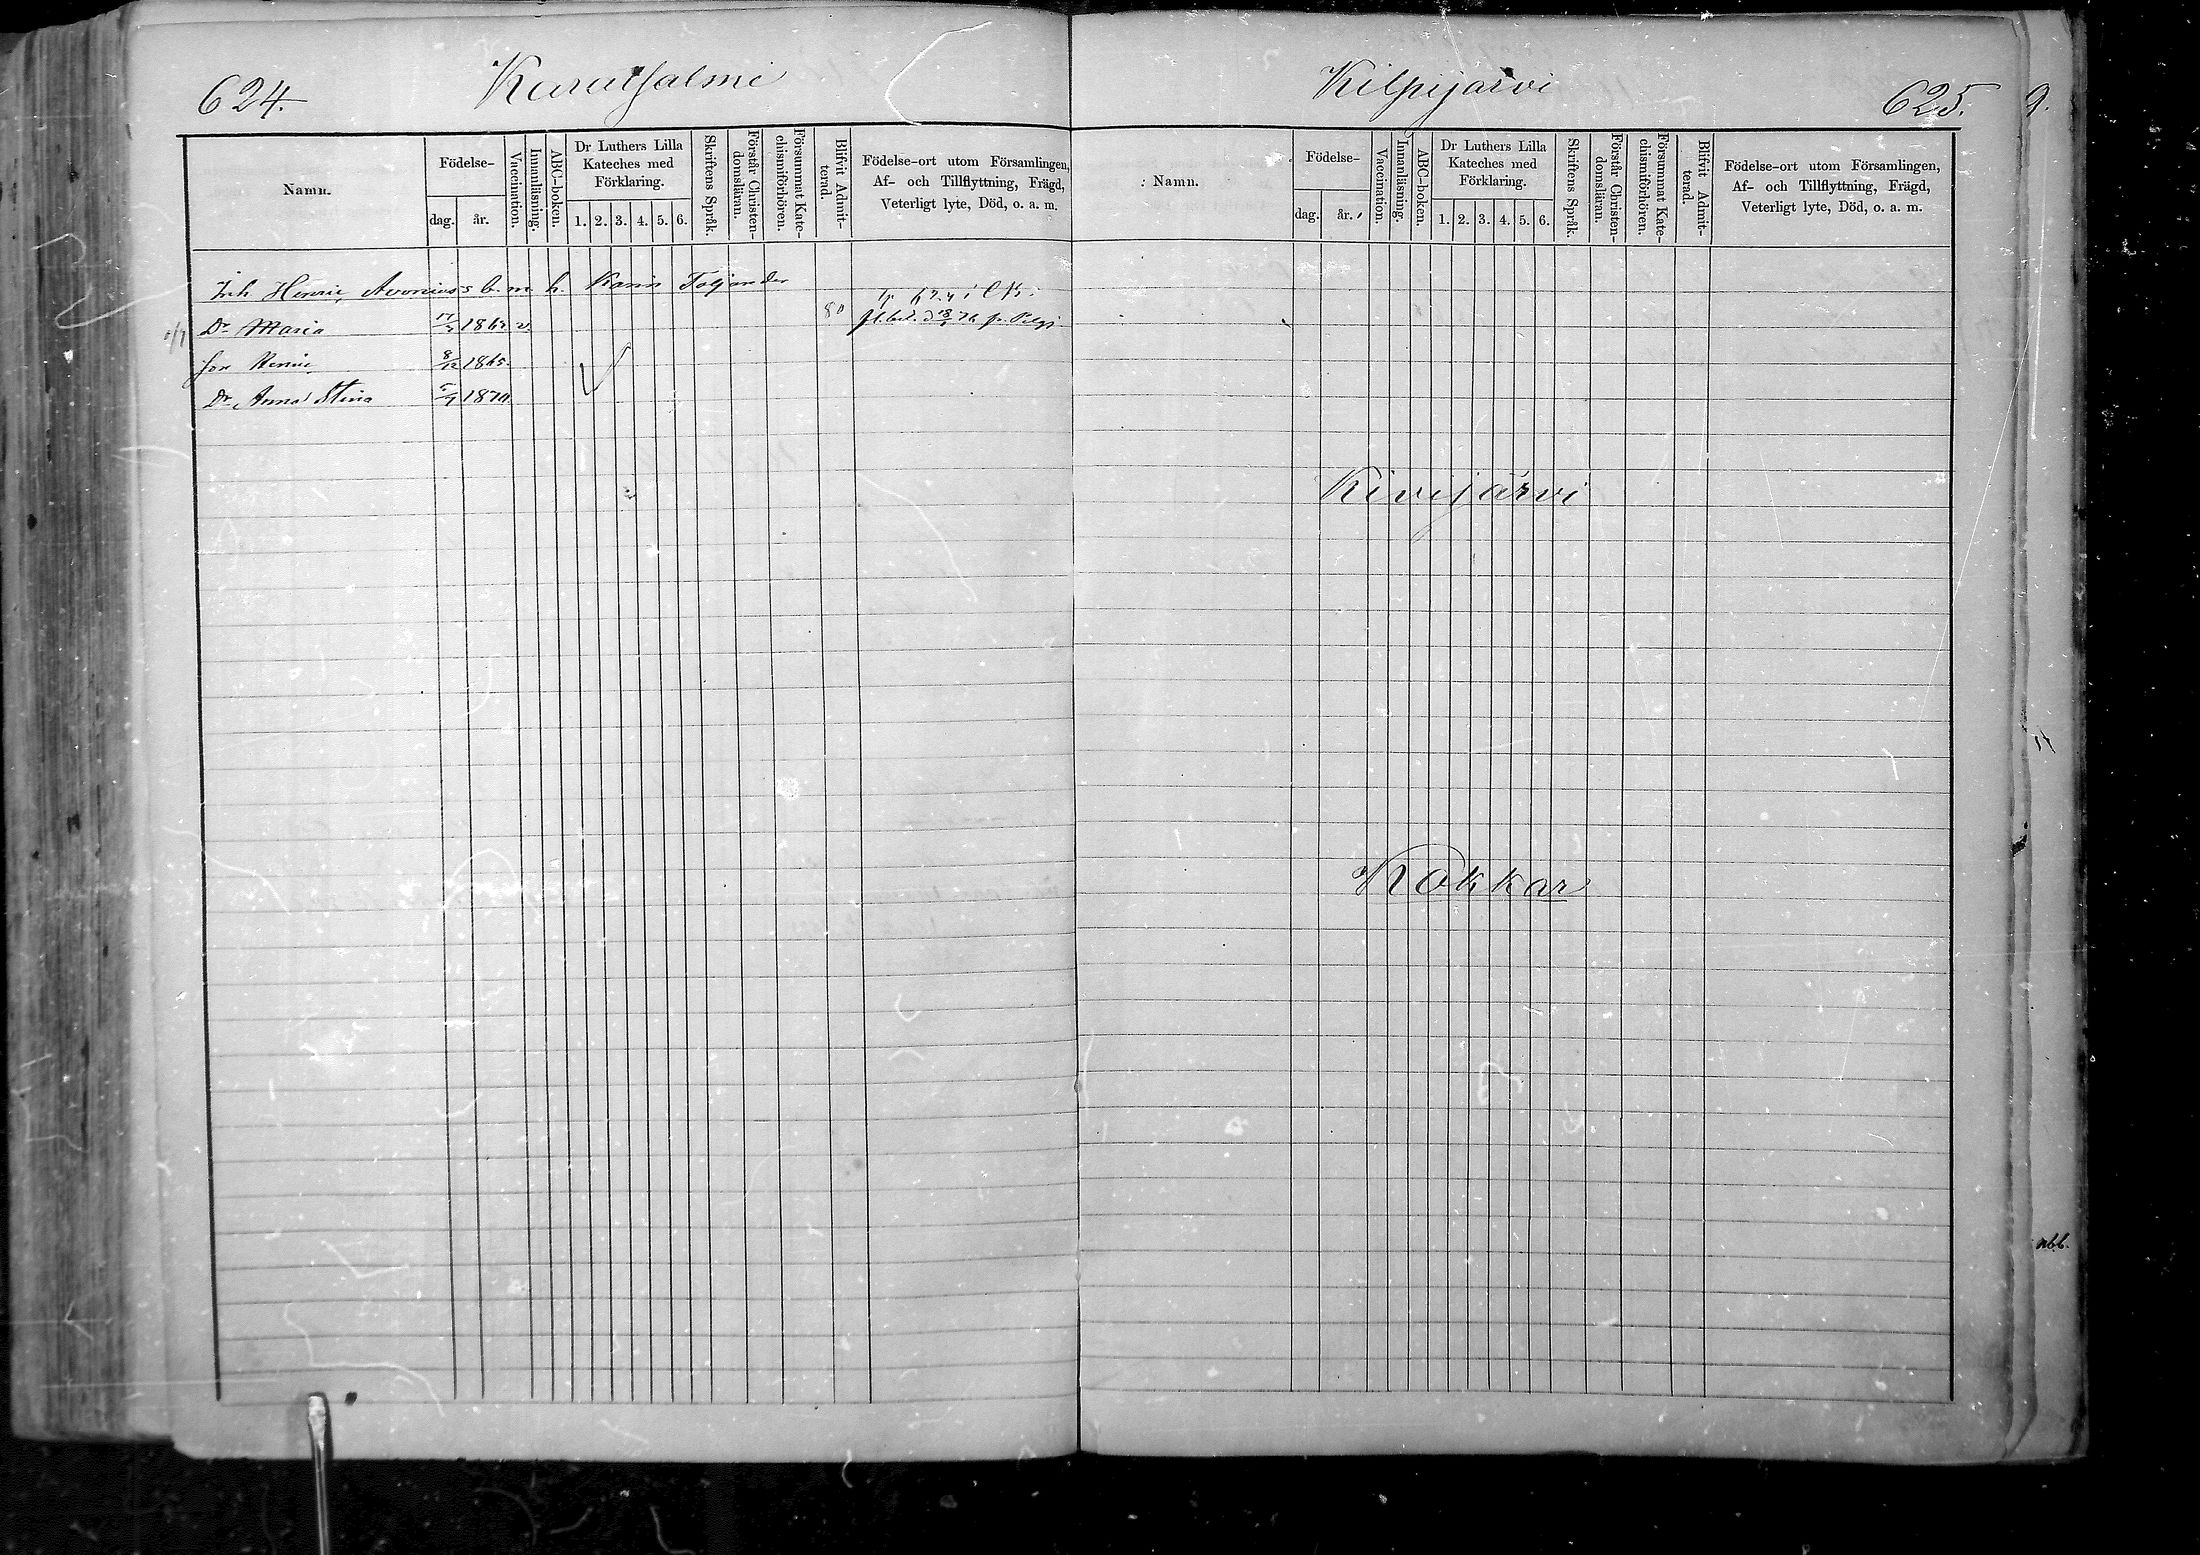 624.
Karathalmi
Namn.
Födelse-
dag.
år.
Vaccination.
Innanläsning.
ABC-boken.
Dr Luthers Lilla
Kateches med
Förklaring.
1. 2. 3. 4. 5. 6.
Skriftens Språk.
Förstår Christen-
domsläran.
Försummat Kate-
chismiförhören.
Blifvit Admit-
terad.
Födelse-ort utom Församlingen,
Af- och Tillflyttning, Frägd,
Veterligt lyte, Död, o. a. m.
Inh Henric Avonius b. m. h. Karin Toljander
Dr Maria 1862 v. 80
Son Henric 8/12 1865.
Dr Anna Stina 1870.
Kilpijärvi
625.
Namn.
Födelse-
dag.
år.
Vaccination.
Innanläsning.
ABC-boken.
Dr Luthers Lilla
Kateches med
Förklaring.
1. 2. 3. 4. 5. 6.
Skriftens Språk.
Förstår Christen-
domsläran.
Försummat Kate-
chismiförhören.
Blifvit Admit-
terad.
Födelse-ort utom Församlingen,
Af- och Tillflyttning, Frägd,
Veterligt lyte, Död, o. a. m.
Kivijärvi
Kokkar
9.